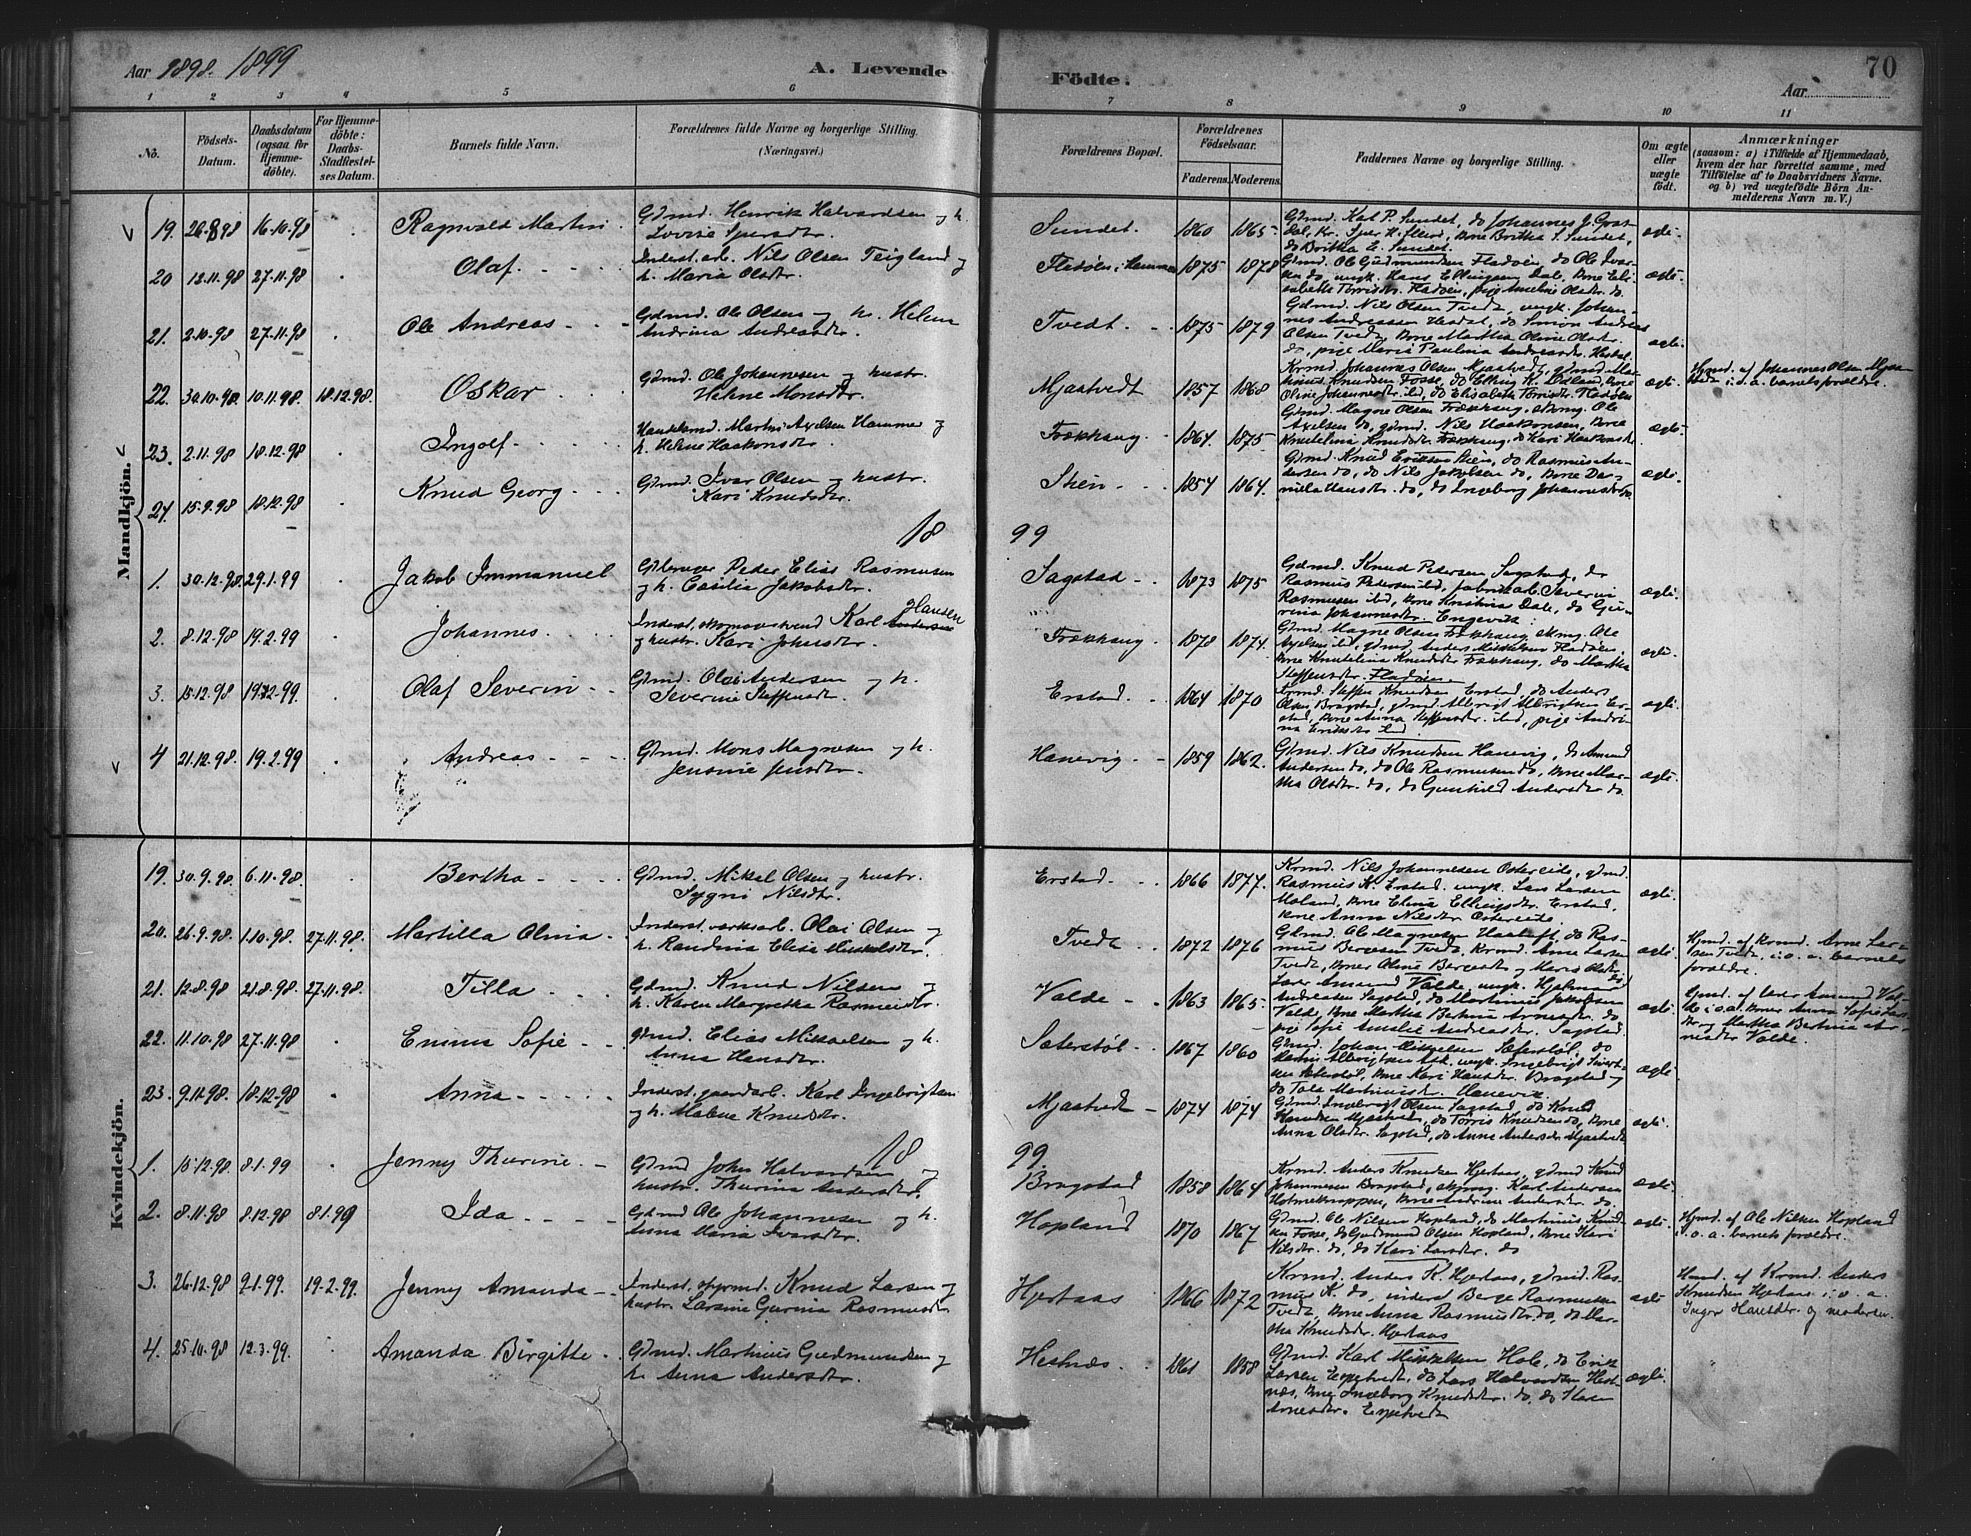 70
Aar 1898. 1899
A. Levende Födte.
Aar
1 2 3 4 5 6 7 8 9 10 11
No.
Födsels-Datum.
Daabsdatum (ogsaa for Hjemmedöbte).
For Hjemmedöbte: Daabs-Stadfæstelses Datum.
Barnets fulde Navn.
Forældrenes fulde Navne og borgerlige Stilling. (Næringsvei.)
Forældrenes Bopæl.
Forældrenes Födselsaar.
Faderens. Moderens.
Faddernes Navne og borgerlige Stilling.
Om ægte eller uægte födt.
Anmærkninger
(saasom: a) i Tilfælde af Hjemmedaab, hvem der har forrettet samme, med Tilföielse af to Daabsvidners Navne. og b) ved uægtefödte Börn Anmelderens Navn m. V.)
Mandkjön.
19. 26.8.98 16.10.98 Ragnvald Martin Gdmd. Henrik Halvardsen og h. Lovise Sjursdtr. Sundet. 1860 1865 Gdmd. Karl P. Sundet, do Johannes J. do Britha E. Sundet. ægte.
20 12.11.98 27.11.98 Olaf. Inderst, arb. Nils Olsen Teigland og h. Maria Olsdtr. Fladöen i Hammer 1875 1878 Gdmd. Ole Gudmundsen Fladöen, do Ole Ivarsen do, ungk. Hans Ellingsen Dale, Kone Elisabeth Torrisdtr. Fladöen, pige Ameline Olsdtr. do. ægte.
21. 2.10.98 27.11.98 Ole Andreas Gdmd. Ole Olsen og h. Helene Andrina Andreasdtr. Tvedt. 1875 1879 Gdmd. Nils Olsen Tvedt, ungk. Johannes Andreassen do Simon Andreas Olsen Tvedt, Kone Martha Oline Olsdtr. do, pige Maria Paulina Andreasdtr. ægte.
22. 30.10.98 10.11.98. 18.12.98. Oskar Gdmd. Ole Johannesen og hustr. Helene Monsdtr. Mjaatvedt 1857 1868 Krmd. Johannes Olsen Mjaatvedt, gdmd. Martinus Knudsen Fosse, do Elling K. Kone Oline Johannesdtr. ibd, do Elisabeth Torrisdtr. Fladöen ægte. Hjmd. af Johannes Olsen Mjaatvedt i. o. a. barnets forældre.
23. 2.11.98 18.12.98 Ingolf. Handelsmd. Martin Axelsen Hammer og h. Helene Haakonsdtr. Frækhaug 1864. 1875 Gdmd. Magne Olsen Frækhaug, Ole Axelsen do, gdmd. Nils Haakonsen, Kone Knutelina Knudsdtr Frækhaug, do Kari Haakonsdtr. ægte.
24. 15.9.98 18.12.98 Knud Georg Gdmd. Ivar Olsen og hustr. Kari Knudsdtr. Stien 1854 1864. Gdmd. Knud Eriksen Stien, do Rasmus Andersen do, do Nils Jakobsen do, Kone Daniela Hansdtr. do, do Ingeborg Johannesdtr do ægte.
18 99
1. 30.12.98. 29.1.99 Jakob Immanuel Gdbruger Peder Elias Rasmusen og h. Cecilia Jakobsdtr. Sagstad 1873 1875 Gdmd. Knud Petersen Sagstad, do Rasmus Petersen ibd, fabrikarb. Severin Rasmusen ibd, Kone Kristina Dale, do Gurina Johannesdtr. Engevik. ægte.
2. 8.12.98 19.2.99 Johannes Inderst, Karl Hansen og hustr. Kari Johnsdtr. Frækhaug. 1878 1874. Gdmd. Magne Olsen Frækhaug, Ole Axelsen ibd, gdmd. Anders Mikkelsen Fladöen, Kone Knutelina Knudsdtr Frækhaug, do Martha Steffensdtr. Fladöen. ægte.
3. 15.12.98 19.2.99. Olaf Severin Gdmd. Olai Andersen og h. Severine Steffensdtr. Erstad. 1864 1870 Krmd. Steffen Knudsen Erstad, do Anders Olsen Bragstad, gdmd. Albrigt Albrigtsen Erstad, Kone Anna Steffensdtr. ibd, pige Andrina Eriksdtr ibd. ægte.
4 21.12.98. 19.2.99 Andreas Gdmd. Mons Magnesen og h. Jensine Jensdtr. Hanevig. 1859 1862. Gdmd. Nils Knudsen Hanevig, do Amund Andersen do, do Ole Rasmusen do, Kone Martha Olsdtr. do, do Gunhild Andersdtr do ægte.
Kvindekjön.
19. 30.9.98. 6.11.98. Bertha Gdmd. Mikal Olsen og hustr. Sygni Nilsdtr. Erstad. 1866 1877. Krmd. Nils Johannesen Ostereide, gdmd. Rasmus K. Erstad, ungk. Lars Larsen Moland, Kone Elina Ellingsdtr. Erstad, Kone Anna Nilsdtr Ostereide. ægte.
20. 26.9.98. 1.10.98. 27.11.98. Martilla Olina Inderst, værksarb. Olai Olsen og h. Randina Elisa Mikkelsdtr. Tvedt 1872 1876 Gdmd. Ole Magnesen do Rasmus Bergesen Tvedt, Krmd. Arne Larsen Tvedt, Koner Oline Bergesdtr og Maris Olsdtr. do ægte. Hjmd. af krmd. Arne Larsen Tvedt, i. o. a. barnets forældre.
21. 12.8.98 21.8.98. 27.11.98. Tilla Gdmd. Knud Nilsen og h. Karen Margretha Rasmusdtr. Valde 1863 1865 Lærer Amund Valde, ungk. Hjalmar Andreasen Sagstad, do Martinus Jakobsen Valde, Kone Martha Bertina Arnesdtr. do pige Sofie Amalie Andreasdtr. Sagstad. ægte. Hjmd. af lærer Amund Valde i. o. a. Koner Anna Sofie og Martha Bertina Arnesdtr Valde.
22. 11.10.98 27.11.98 Emma Sofie Gdmd. Elias Mikkelsen og h. Anna Hansdtr. Sæterstöl 1867 1860 Gdmd. Johan Mikkelsen Sæterstöl, do Albrigtsen ungk. Ingebrigt Kone Kari Hansdtr. Bragstad og do Tala Martinusdtr. Hanevik. ægte.
23. 9.11.98. 18.12.98 Anna Inderst, gaardarb. Karl Ingebrigtsen og h. Malene Knudsdtr. Mjaatvedt 1874 1874 Gdmd. Ingebrigt Olsen Sagstad, do Knud Mjaatvedt, do Torris Knudsen do, Kone Anna Olsdtr. Sagstad, do Anne Andersdtr Mjaatvedt ægte.
18 99
1. 15.12.98. 8.1.99 Jenny Thurine Gdmd. John Halvardsen og hustr. Thurina Andersdtr. Bragstad 1858 1864 Krmd. Anders Knudsen Hjertaas, gdmd Knud Johannesen Bragstad, Karl Andersen Holmeknappen, Kone Andrine Andersdtr do ægte.
2. 8.11.98 8.12.98 8.1.99 Ida Gdmd Ole Johannesen og h. Anna Maria Ivarsdtr. Hopland 1870 1867 Gdmd. Ole Nilsen Hopland, do Martinus Knudsen Fosse, do Gudmund Olsen Hopland, Kone Kari Nilsdtr. do, do Kari Larsdtr. do ægte Hjmd. af Ole Nilsen Hopland i. o. a. barnets forældre.
3. 26.12.98 9.1.99. 19.2.99. Jenny Amanda Inderst, Knud Larsen og hustr. Larsine Gurina Rasmusdtr Hjertaas 1866 1872 Krmd. Anders K. Hjertaas, gdmd. Rasmus K. do, inderst Berge Rasmusen Tvedt, Kone Anna Rasmusdtr. do, do Martha Knudsdtr. Hjertaas ægte Hjmd. af Krmd. Anders Knudsen Hjertaas i. o. a. Inger Hansdtr. og moderen.
4. 25.10.98 12.3.99. Amanda Birgitte Gdmd. Martinus Gudmundsen og h. Anna Andersdtr. Hestnæs. 1861 1858 Gdmd. Karl Mikkelsen Hole, do Erik Larsen Eppetvedt, do Lars Halvardsen Hestnæs, Kone Ingeborg Knudsdtr. do, do Arnesdtr. Eppetvedt ægte.